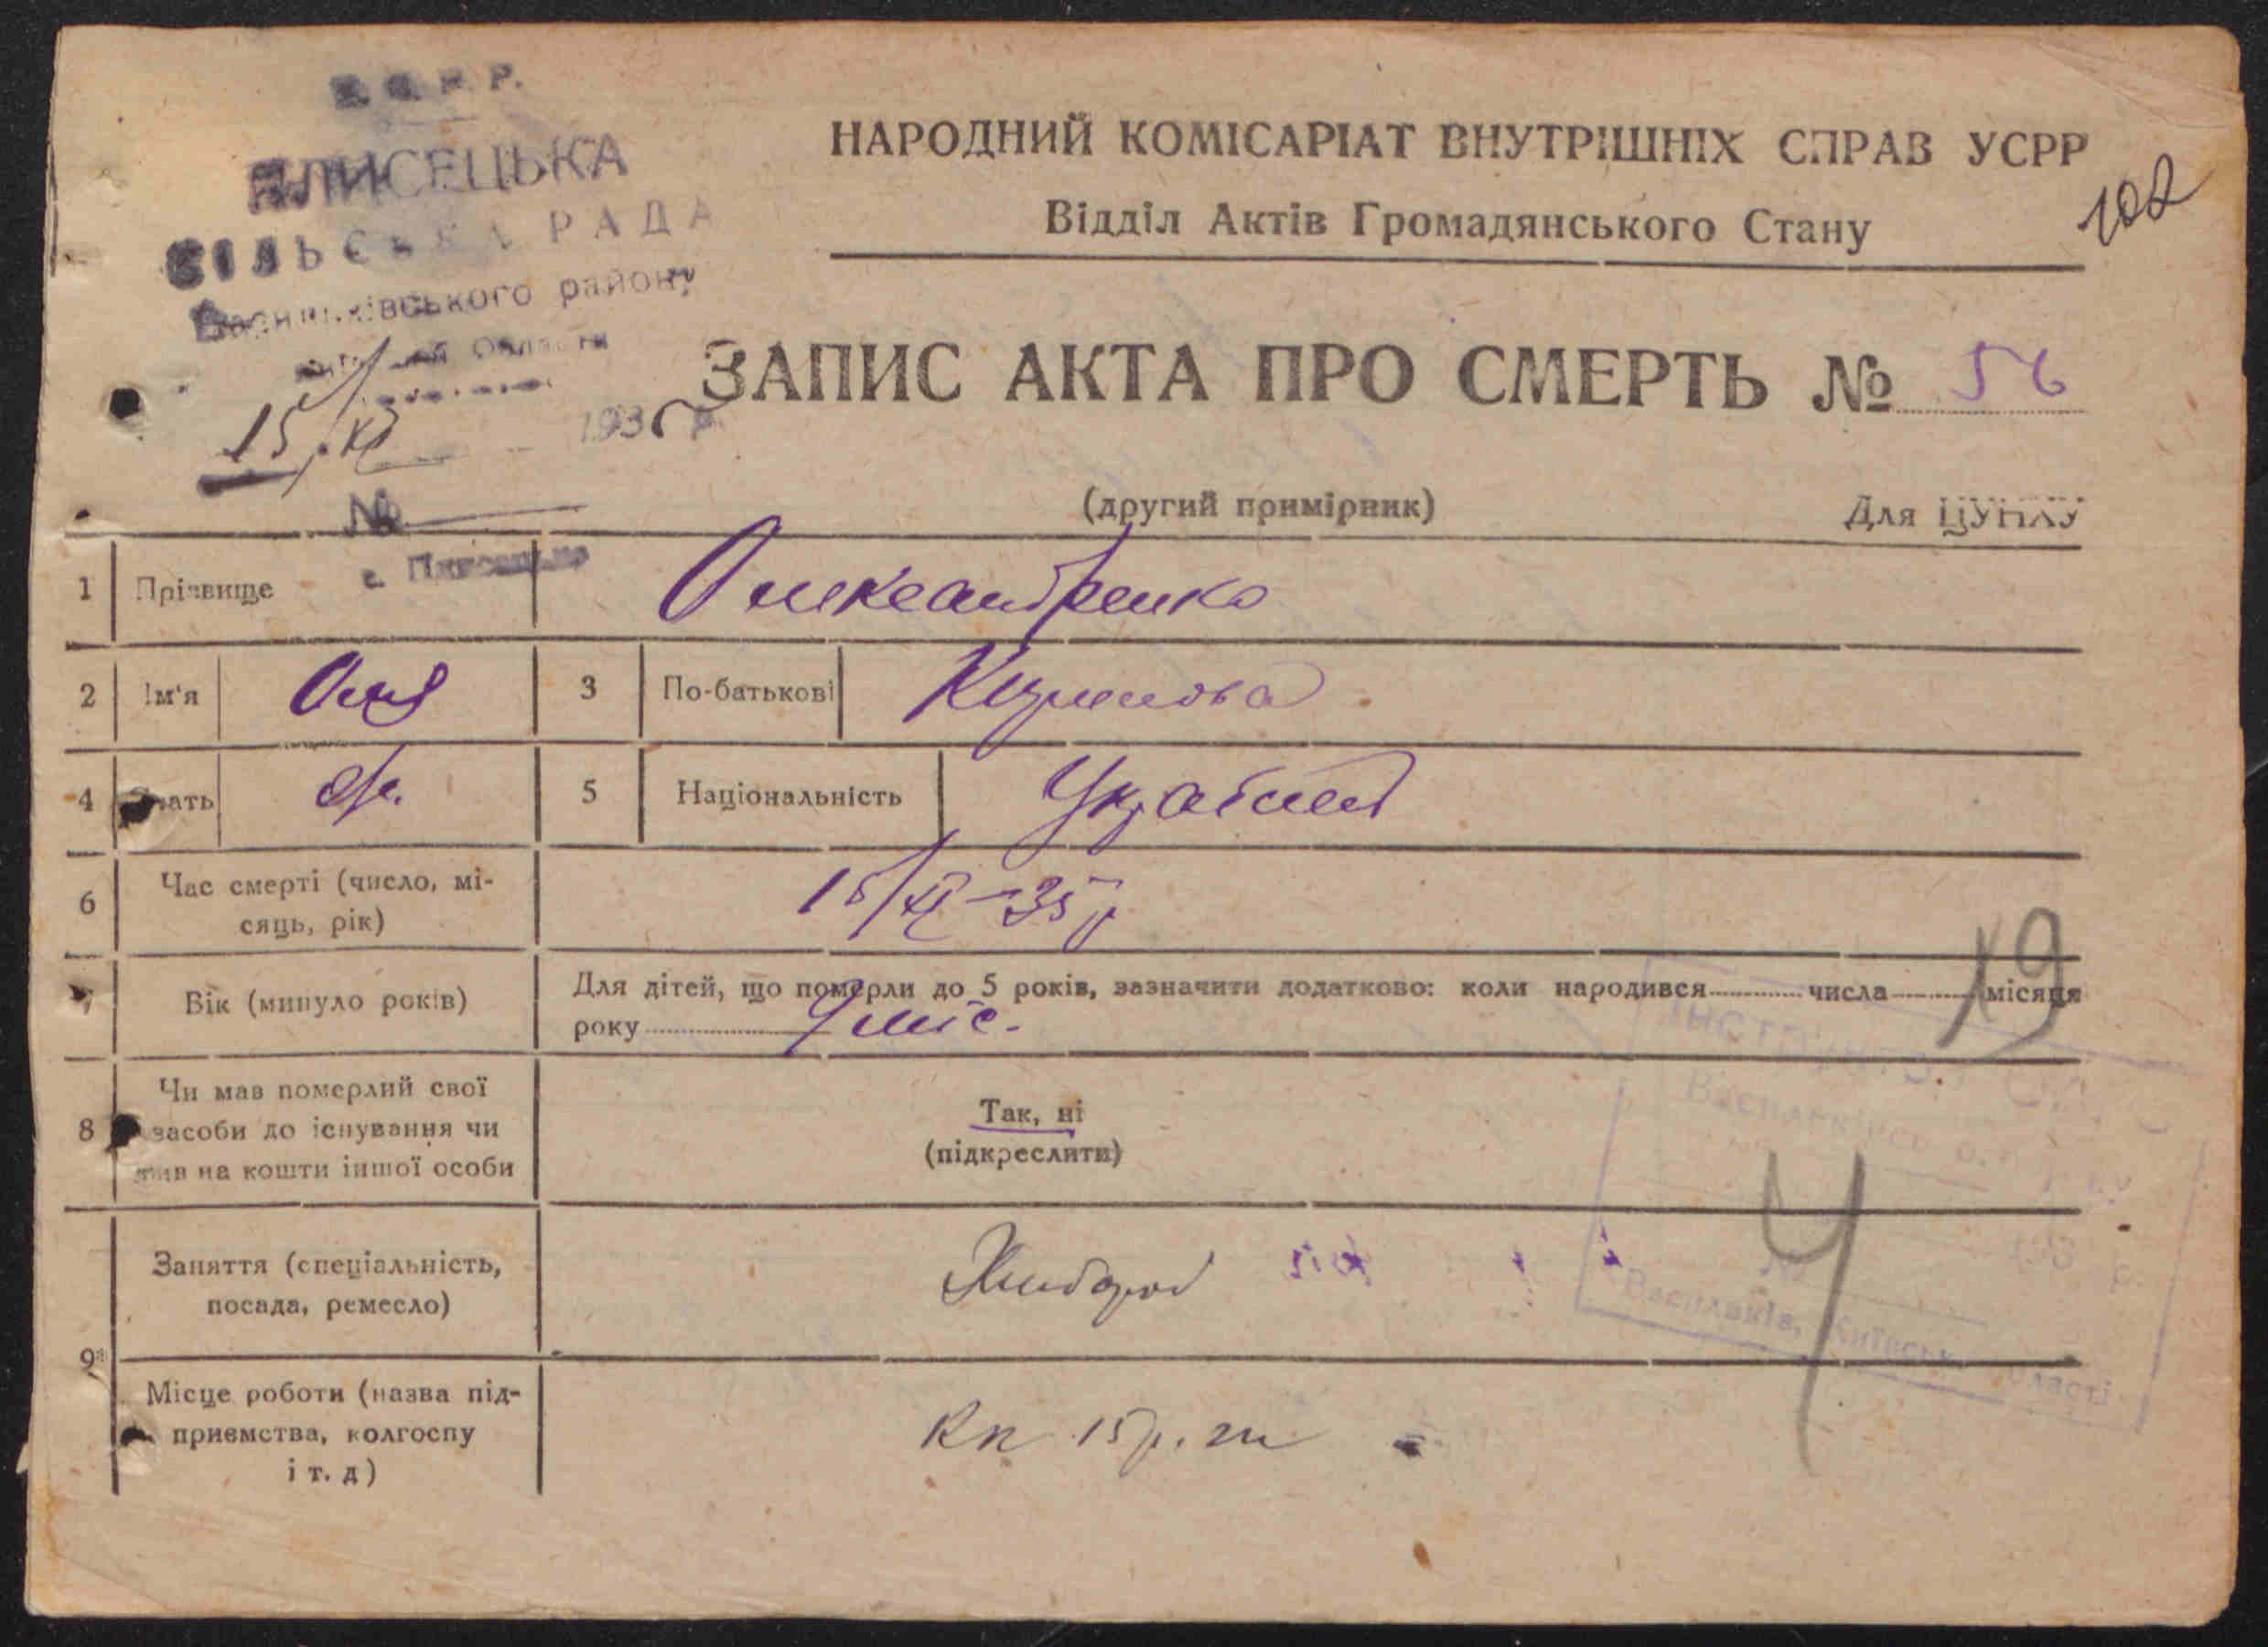 У.С.Р.Р.
ПЛИСЕЦЬКА
СІЛЬСЬКА РАДА
Васильківського району
області
15/XI 1935 р.
№
с. Плисецьке
НАРОДНИЙ КОМІСАРІАТ ВНУТРІШНІХ СПРАВ УСРР
Відділ Актів Громадянського Стану
102
ЗАПИС АКТА ПРО СМЕРТЬ № 56
(другий примірник)
Для ЦУНХУ
1 Прізвище Олександренко
2 Ім'я Оля 3 По-батькові
4 Стать 5 Національність
6 Час смерті (число, мі-
сяць, рік) 15/XI-35 р
19
7 Вік (минуло років) Для дітей, що померли до 5 років, зазначити додатково: коли народився числа місяця
року міс.
8 Чи мав померлий свої
засоби до існування чи
жив на кошти іншої особи
Так, ні
(підкреслити)
4
9а Заняття (спеціальність,
посада, ремесло) Хлібороб
Місце роботи (назва під-
приємства, колгоспу
і т. д)
Васильківськ
193 р.
№
Васильків, Київської області